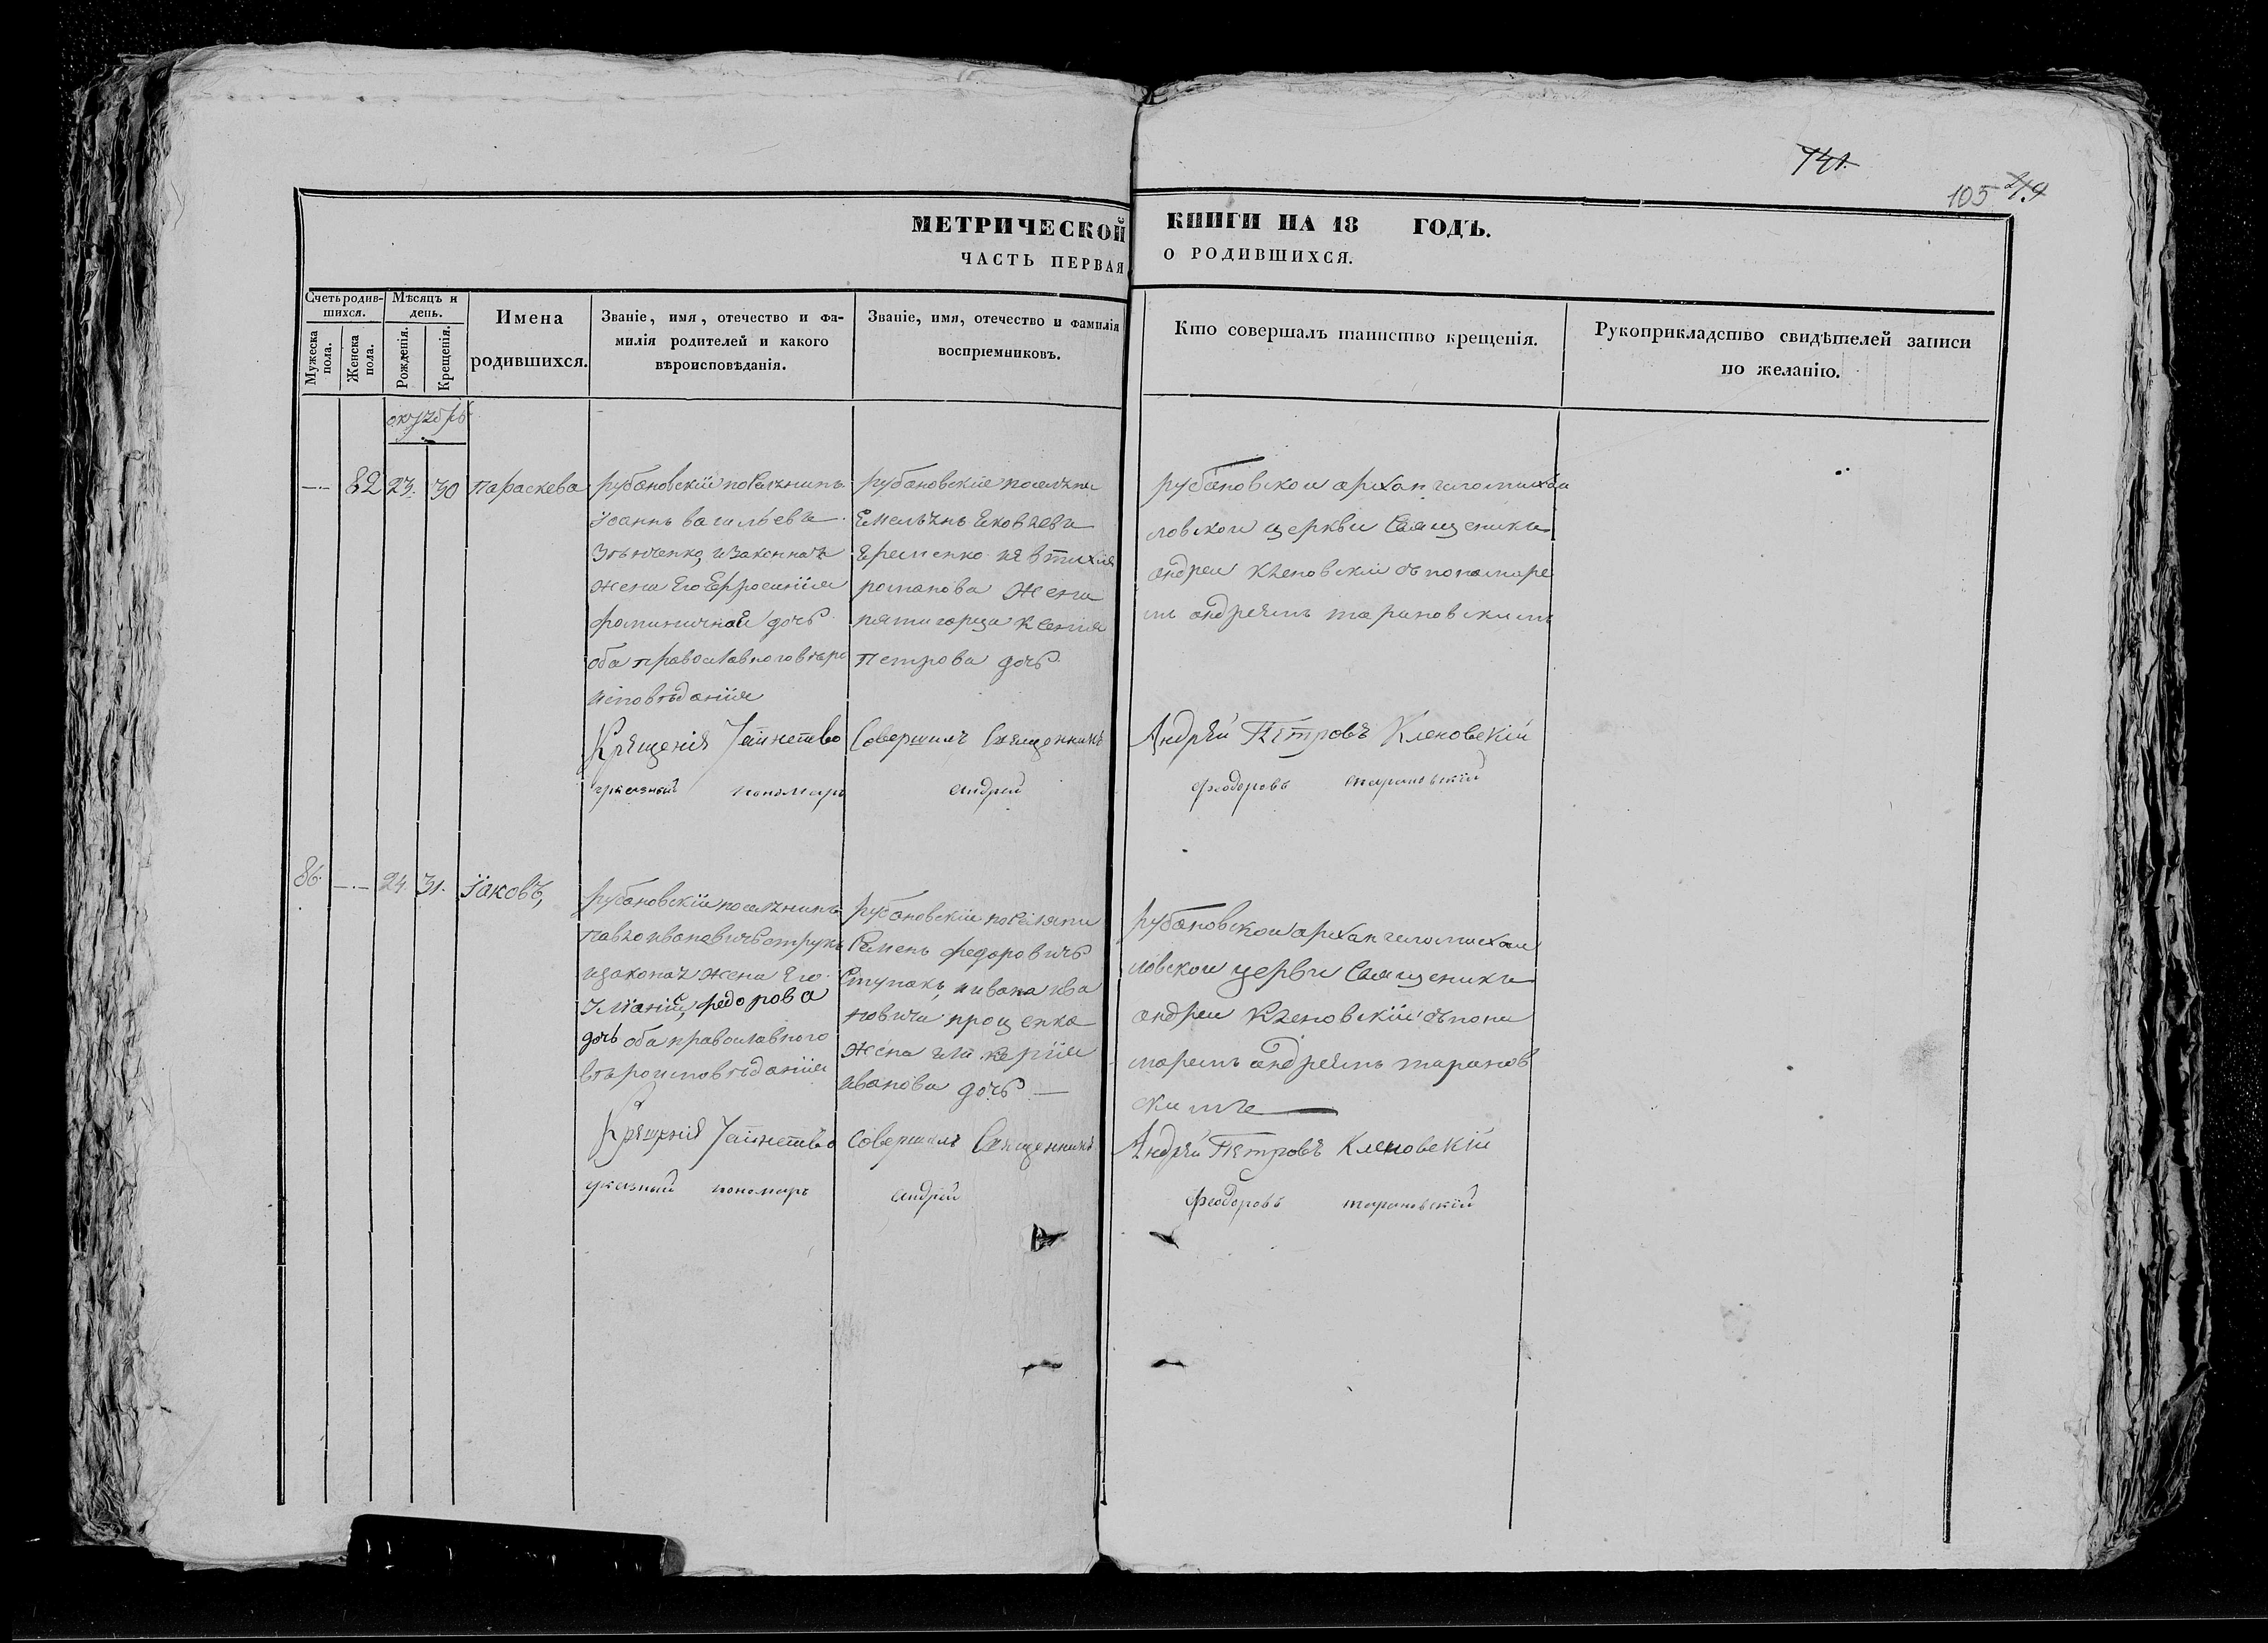 741.
105 219
МЕТРИЧЕСКОЙ КНИГИ НА 18 ГОДЪ.
ЧАСТЬ ПЕРВАЯ О РОДИВШИХСЯ.
Счетъ родив-
шихся.
Мужеска
пола.
Женска
пола.
Мѣсяцъ и
день.
Рожденія.
Крещенія.
Имена
родившихся.
Званіе, имя, отечество и фа-
милія родителей и какого
вѣроисповѣданія.
Званіе, имя, отечество и фамилія
воспріемниковъ.
Кто совершалъ таинство крещенія.
Рукоприкладство свидѣтелей записи
по желанію.
октябрь
82 23. 30 Параскева
рубановскій поселянинъ
Іоаннъ васильевъ
жена Его Ефросинія
дочь
оба православного вѣро
исповѣданія
рубановскіе поселяне
Емельянъ Яковлевъ
Яременко
романова жена
ксенія
Петрова дочь
рубановской архангеломихаи
ловской церкви Священикъ
андреи Кленовскій съ пономаре
мъ андреямъ тарановскимъ
Крещенія Таинство Совершилъ Священникъ Андрѣй Петровъ Кленовскій
указный пономарь андрей феодоровъ тарановскій
86. 24 31. Іаковъ,
рубановскій поселянинъ
павло ивановичъ
жена Его
федорова
дочь оба православного
вѣроисповѣданія
рубановскіе поселяни
Семенъ федоровичъ
Ступакъ, и ивана ива
новича проценка
жена
иванова дочь
рубановскои архангеломихаи
ловскои церви Священикъ
андреи Кленовскіи съ поно
маремъ андреямъ таранов
скимъ
Крещенія Таинство Совершилъ Священникъ Андрѣй Петровъ Кленовскій
указный пономарь андрій феодоровъ тарановскій